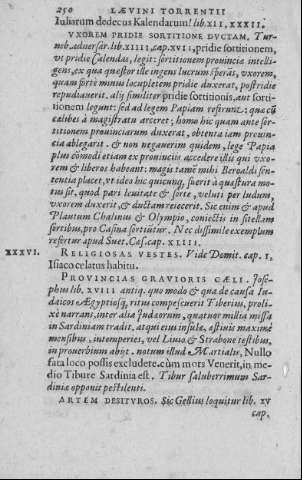 250 LAEVINI TORRENTII
Iuliarum dedecus Kalendarum! lib. XII, XXXII.
VXOREM PRIDIE SORTITIONE DVCTAM. Tur-
neb. aduersar. lib. XIIII, cap. XVII, pridie sortitionem,
vt pridie Calendas, legit: sortitionem prouincię intelli-
gens, ex qua quęstor ille ingens lucrum sperās, vxorem,
quam forte minus locupletem pridie duxerat, postridie
repudiauerit. alij similiter pridie sortitionis, aut sorti-
tionem legunt: sed ad legem Papiam referunt: qua cū
cælibes à magistratu arceret; homo hic quam ante sor-
titionem prouinciarum duxerat, obtenta iam prouin-
cia ablegarit. & non negauerim quidem, lege Papia
plus cōmodi etiam ex prouincijs accedere illis qui vxo-
rem & liberos habeant: magis tamē mihi Beroaldi sen-
tentia placet, vt ideo hic quicunq; fuerit à quæstura mo-
tus sit, quod pari leuitate & sorte, veluti per ludum,
vxorem duxerit, & ductam reiecerit. Sic enim & apud
Plautum Chalinus & Olympio, coniectis in sitellam
sortibus, pro Casina sortiūtur. Nec dissimile exemplum
refertur apud Suet. Cæs. cap. XLIII.
XXXVI. RELIGIOSAS VESTES. Vide Domit. cap. I,
Isiaco celatus habitu.
PROVINCIAS GRAVIORIS CÆLI. Iose-
phus lib. XVIII antiq. quo modo & qua de causa Iu-
daicos Ægyptiosq; ritus compescuerit Tiberius, proli-
xè narrans, inter alia Iudæorum, quatuor millia missa
in Sardiniam tradit, atqui eius insulæ, æstiuis maximè
mensibus, intemperies, vel Liuio & Strabone testibus,
in prouerbium abijt. notum illud Martialis, Nullo
fata loco possis excludere. cùm mors Venerit, in me-
dio Tibure Sardinia est. Tibur saluberrimum Sar-
diniæ opponit pestilenti.
ARTEM DESITVROS. Sic Gellius loquitur lib. XV
cap.